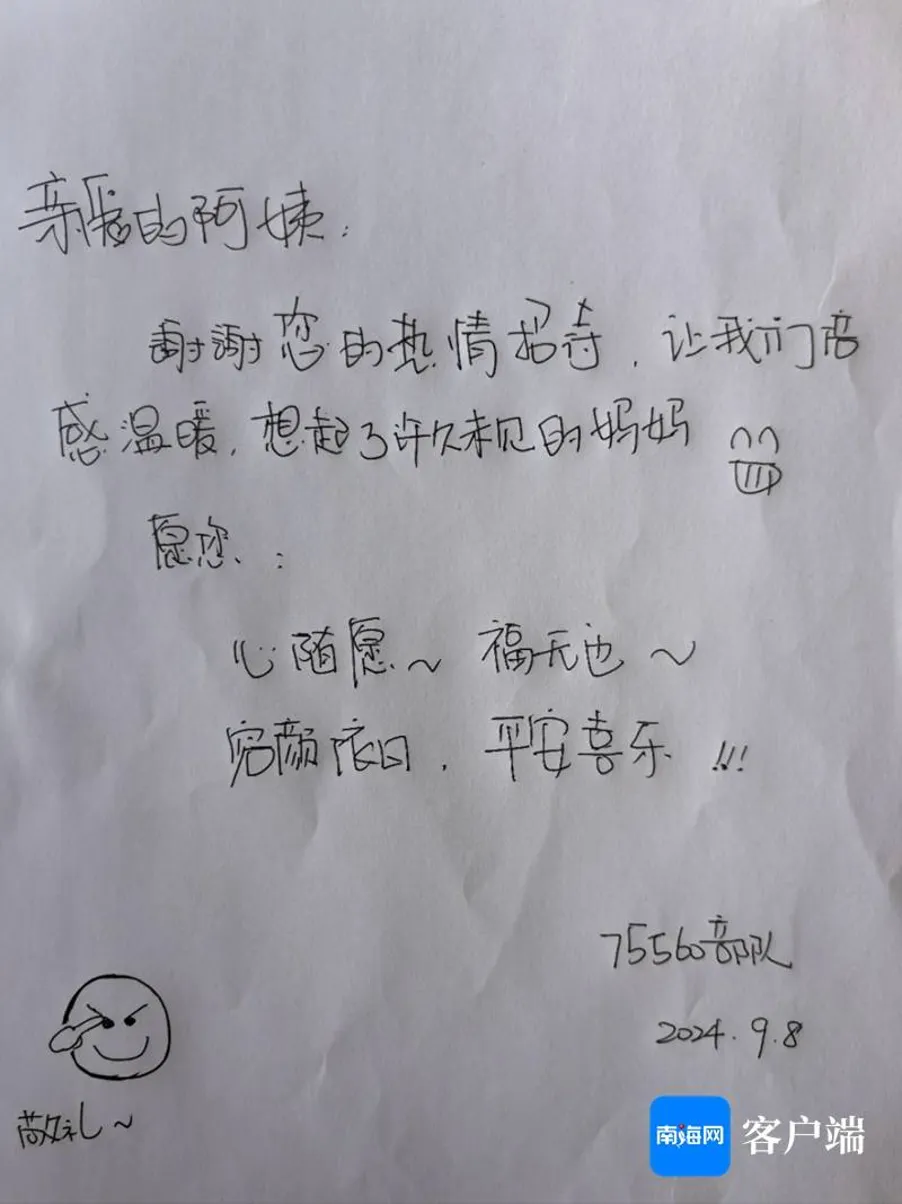 亲爱的阿姨:
谢谢您的热情招待,让我们倍
感温暖,想起了许久未见的妈妈
愿您:
心随愿~ 福无边~
容颜依旧,平安喜乐!!!
75560部队
2024.9.8
敬礼~
南海网 客户端